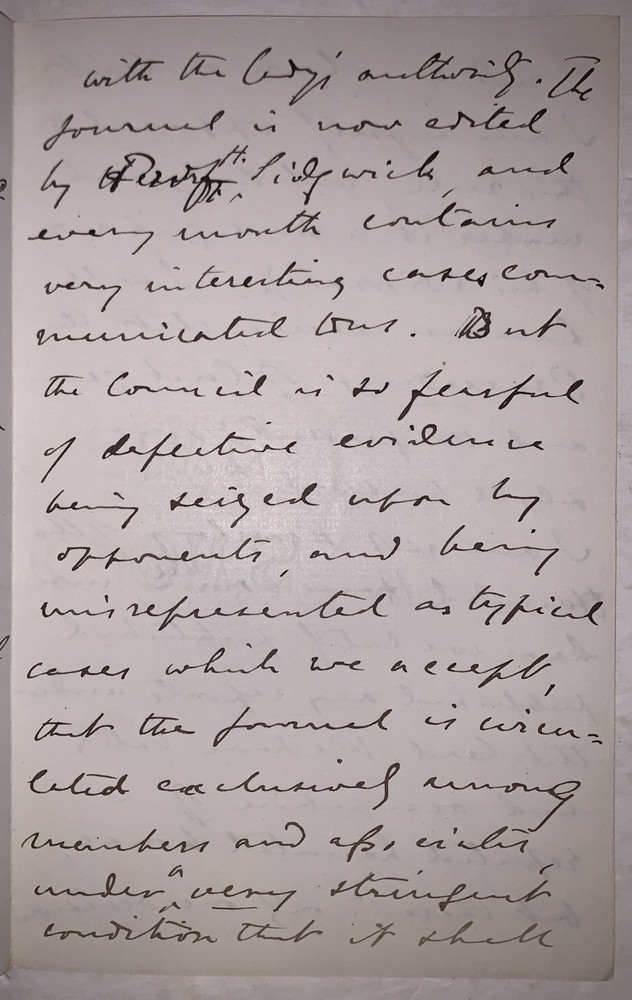 with the lady's authority. The
Journal is now edited
by Prof. H. Sidgwick, and
every month contains
very interesting cases com=
municated to us. But
the Council is so fearful
of defective evidence
being seized upon by
opponents, and being
misrepresented as typical
cases which we accept,
that the Journal is circu=
lated exclusively among
members and associates,
under a very stringent
condition that it shall